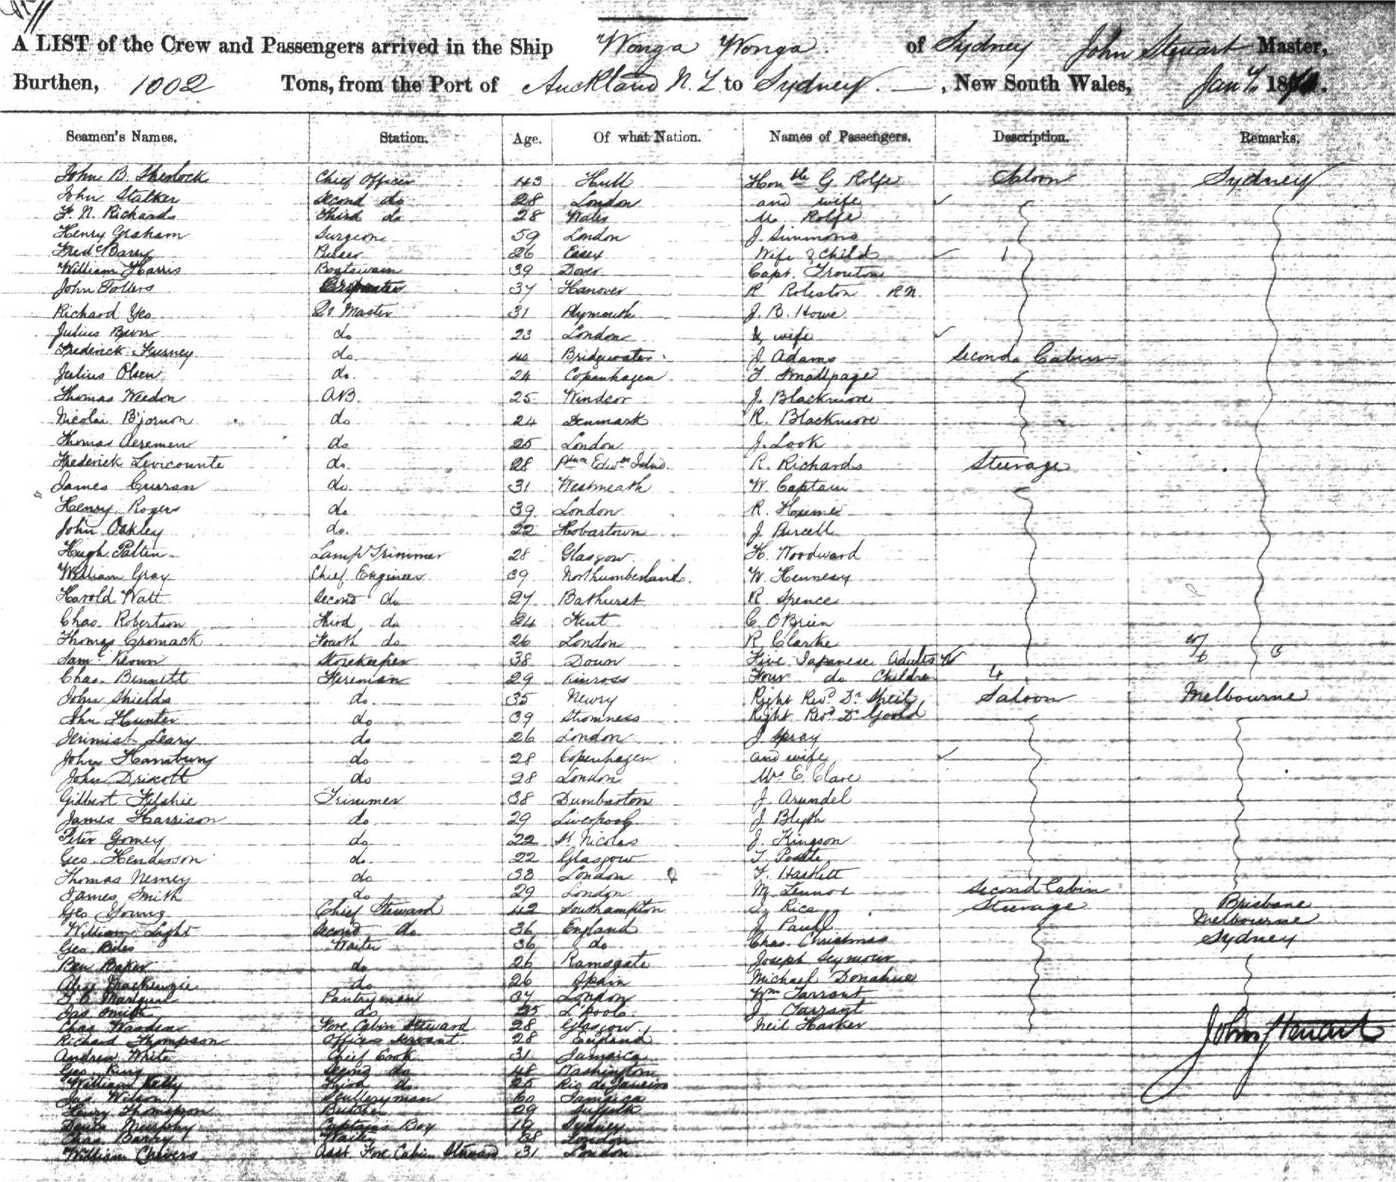 A LIST of the Crew and Passengers arrived in the Ship Wonga Wonga of Sydney John Steuart Master,
Burthen, 1002 Tons, from the Port of Auckland N.Z to Sydney. , New South Wales, Jan 18
Seamen's Names. Station. Age. Of what Nation. Names of Passengers. Description. Remarks.
John B. Chief Officer 43 Hull Honble G Rolfe Saloon Sydney
John Stalker Second do 28 London and wife
F. N. Richards Third do 28 Wales Rolfe
Henry Graham Surgeon 59 London J Simmons
Fredc Barry Purser 26 Essex Wife & Child 1
William Harris Boatswain 39 Dover Capt. Trouton
John Carpenter 37 Hanover R RN.
Richard Yeo Qr Master 31 Plymouth J. B. Howe
Julius do 23 London & wife
Frederick do. Bridgwater J Adams Second Cabin
Julius Olsen do. 24 Copenhagen T Smallpage
Thomas Weedon AB 25 Windsor J. Blackmore
Nicolai do 24 Denmark R. Blackmore
Thomas do 25 London J. Look
Frederick Levicounte do. 28 R. Richards Steerage
James Curran do. 31 Westmeath W. Captain
Henry Rogers do 39 London R
John Oakley do. 22 Hobartown J. Burcell
Hugh Lamp Trimmer 28 Glasgow H. Woodward
William Gray Chief Engineer 39 Northumberland. W. Hennesy
Harold Watt Second do 27 Bathurst R Spence
Chas. Robertson Third do 24 Kent C. O'Brien
Thomas Cromack Fourth do 26 London R Clarke
Saml Keown Storekeeper 38 Down Five Japanese Adults
Chas. Bennett Fireman 29 Kinross Four do Children 4
John Shields do. 35 Newry Right Revd Dr Saloon Melbourne
John Hunter do 39 Stromness Right Revd Dr Goold
Leary do 26 London J Spray
John do 28 Copenhagen and wife
John Driscott do 28 London Mrs E. Clare
Gilbert Filshie Trimmer 38 Dumbarton J. Arundel
James Harrison do. 29 Liverpool J Blyth
Peter Gomey do 22 St Nicolas J. Kingson
Geo. Henderson do. 22 Glasgow T
Thomas Nerney do 33 London F. Haslett
James Smith do 29 London Wm Lennox Second Cabin
Geo Young Chief Steward 42 Southampton Rice Steerage Brisbane
William Light Second do 36 England J. Paull Melbourne
Geo. Waiter 36 do Chas. Christmas Sydney
Ben Baker do 26 Ramsgate Joseph Seymour
Mackenzie do 26 Spain Michael Donahue
Pantryman 37 London Wm Tarrant
Jas Smith do 25 L'pool J Tarrant
Chas Fore Cabin Steward 28 Glasgow Neil Harker
Richard Thompson Officers servant. 28 England John Steuart
Andrew White Chief Cook 31 Jamaica
Geo. King Second do 48 Washington
William Kelly Third do 25 Rio de Janeiro
Jas Wilson Sculleryman Jamaica
Henry Thompson Butcher 29 Suffolk
Murphy Captains Boy 19 Sydney
Chas. Barry Waiter 38 London
William Chivers Asst Fore Cabin Steward 31 London